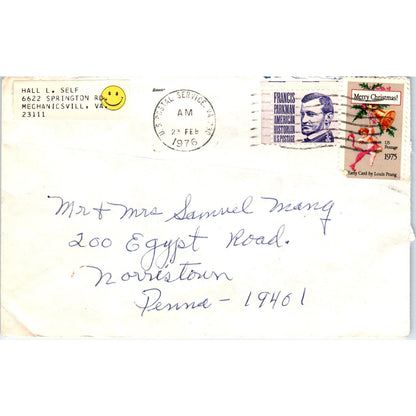 HALL L. SELF
6622 SPRINGTON RD.
MECHANICSVILL, VA.
23111
U.S. POSTAL SERVICE, VA
AM
23 FEB
1976
FRANCIS
PARKMAN
AMERICAN
HISTORIAN
U.S. POSTAGE
Merry Christmas!
US
Postage
1975
Early Card by Louis Prang
Mr & Mrs Samuel Mang
200 Egypt Road.
Norristown
Penna - 19401